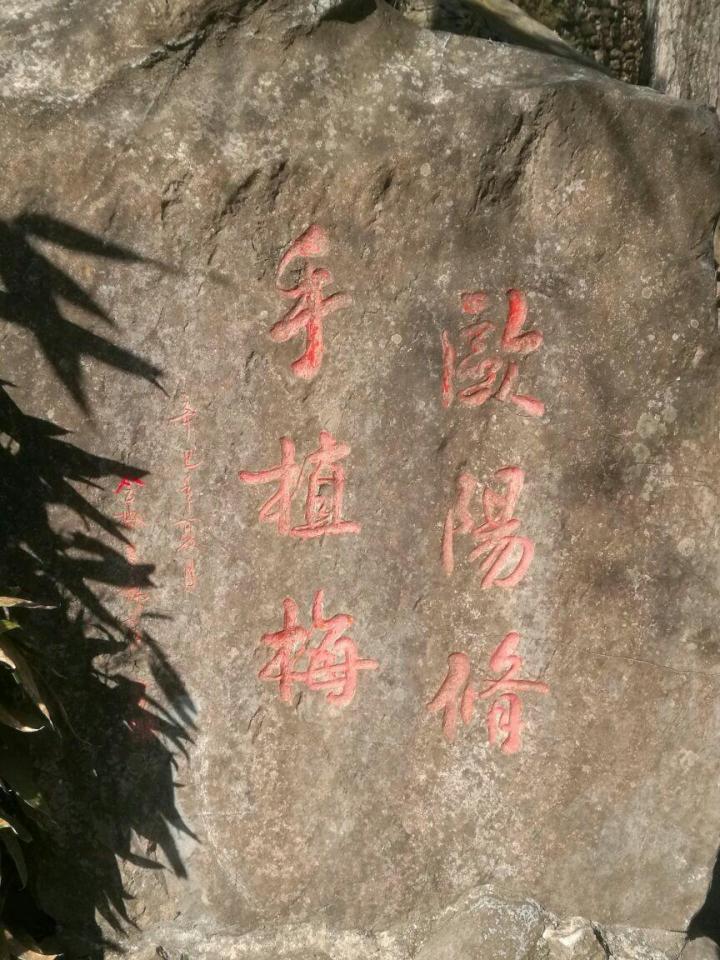 歐陽脩
手植梅
辛巳年夏月